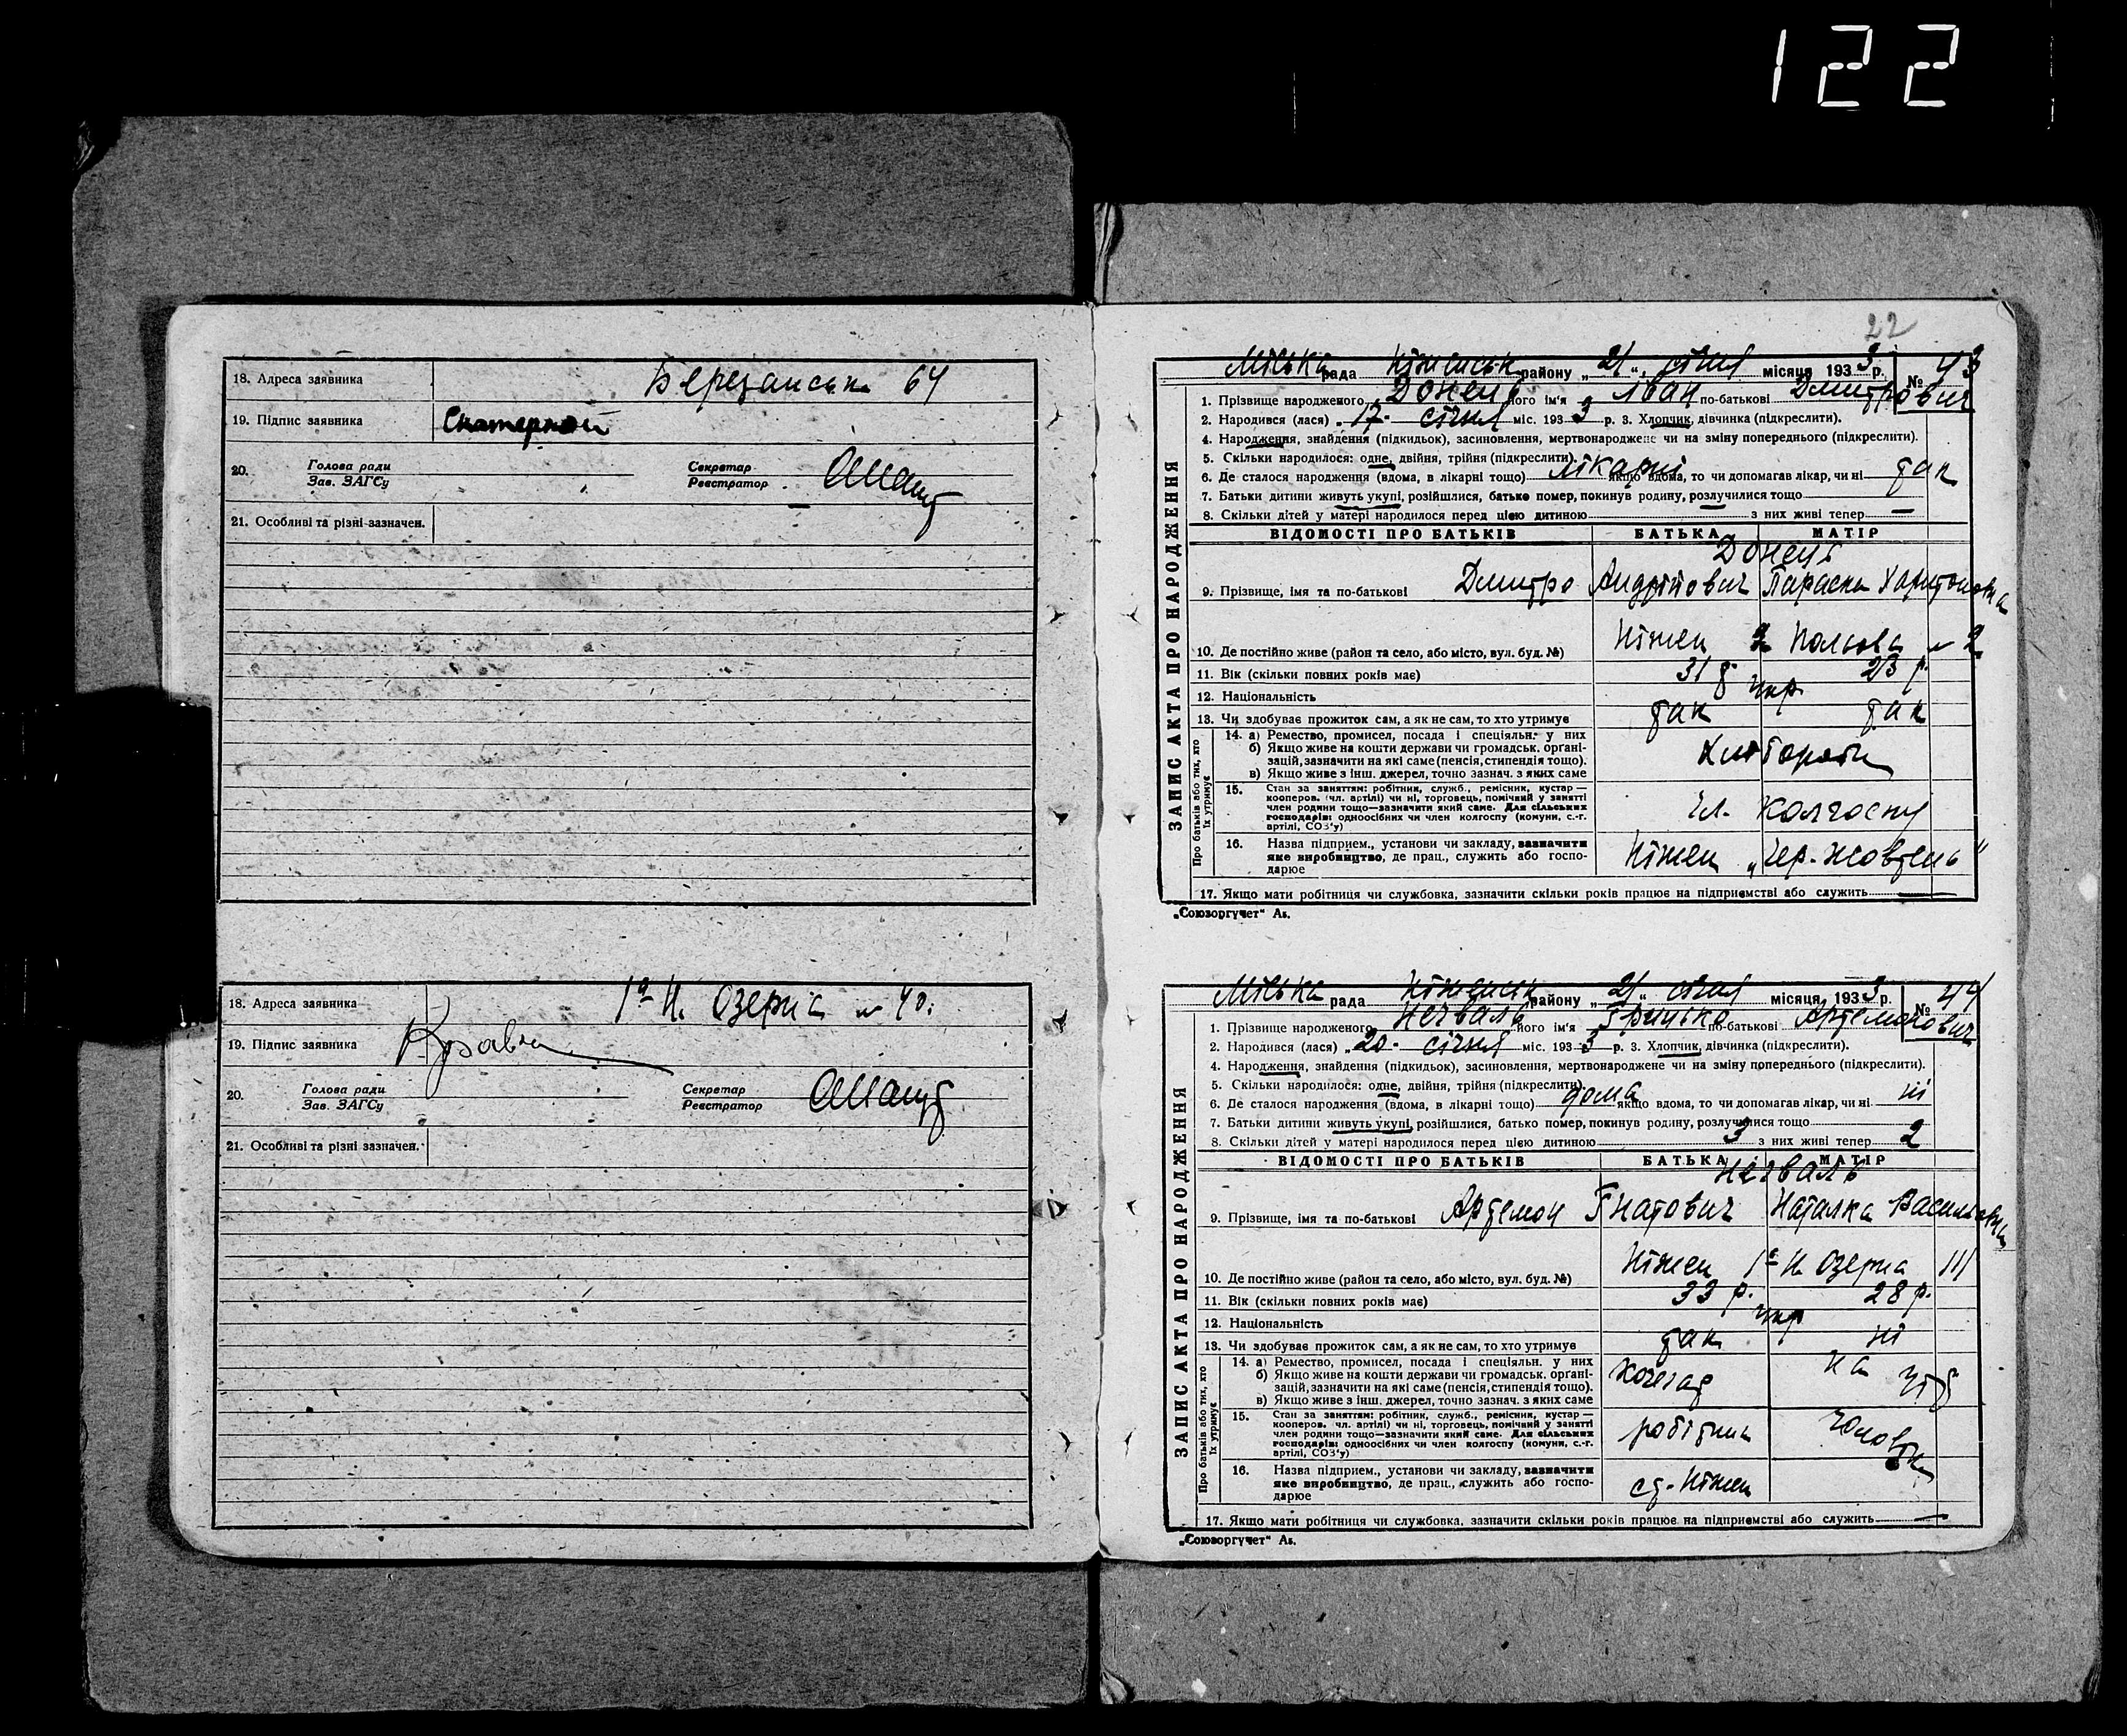 122
18. Адреса заявника Березанська 64
19. Підпис заявника
20. Голова ради Секретар
Зав. ЗАГСу Реєстратор
21. Особливі та різні зазначен.
18. Адреса заявника 1а Н. Озерна № 40.
19. Підпис заявника
20. Голова ради Секретар
Зав. ЗАГСу Реєстратор
21. Особливі та різні зазначен.
22
ЗАПИС АКТА ПРО НАРОДЖЕННЯ
Міська рада Ніженськ району „21“ січня місяця 1933 р. № 43
1. Прізвище народженого Донець його ім'я Іван по-батькові Дмитрович
2. Народився (лася) „17 січня міс. 1933 р. 3. Хлопчик, дівчинка (підкреслити).
4. Народження, знайдення (підкидьок), засиновлення, мертвонароджене чи на зміну попереднього (підкреслити).
5. Скільки народилося: одне, двійня, трійня (підкреслити).
6. Де сталося народження (вдома, в лікарні тощо) лікарні якщо вдома, то чи допомагав лікар, чи ні так
7. Батьки дитини живуть укупі, розійшлися, батько помер, покинув родину, розлучилися тощо
8. Скільки дітей у матері народилося перед цією дитиною з них живі тепер —
ВІДОМОСТІ ПРО БАТЬКІВ БАТЬКА МАТІР
Донець
9. Прізвище, імя та по-батькові Дмитро Андрійович Параска Харитоновна
10. Де постійно живе (район та село, або місто, вул. буд. №) Ніжен 2 Польова № 2
11. Вік (скільки повних років має) 31 р. 23 р.
12. Національність укр.
13. Чи здобуває прожиток сам, а як не сам, то хто утримує так так
Про батьків або тих, хто їх утримує
14. а) Ремество, промисел, посада і спеціяльн. у них
б) Якщо живе на кошти держави чи громадськ. органі-
зацій, зазначити на які саме (пенсія, стипендія тощо).
в) Якщо живе з інш. джерел, точно зазнач. з яких саме
15. Стан за заняттям: робітник, служб., ремісник, кустар—
кооперов. (чл. артілі) чи ні, торговець, помічний у занятті
член родини тощо—зазначити який саме. Для сільських
господарів: одноосібних чи член колгоспу (комуни, с.-г.
артілі, СОЗ'у) чл. колгоспу
16. Назва підприєм., установи чи закладу, зазначити
яке виробництво, де прац., служить або госпо-
дарює Ніжен „Чер. жовтень"
17. Якщо мати робітниця чи службовка, зазначити скільки років працює на підприємстві або служить —
„Союзоргучет“ А5.
ЗАПИС АКТА ПРО НАРОДЖЕННЯ
Міська рада Ніженськ району „21“ січня місяця 1933 р. № 44
1. Прізвище народженого Негваль його ім'я Грицько по-батькові Артемонович
2. Народився (лася) „20 січня міс. 1933 р. 3. Хлопчик, дівчинка (підкреслити).
4. Народження, знайдення (підкидьок), засиновлення, мертвонароджене чи на зміну попереднього (підкреслити).
5. Скільки народилося: одне, двійня, трійня (підкреслити).
6. Де сталося народження (вдома, в лікарні тощо) дома якщо вдома, то чи допомагав лікар, чи ні ні
7. Батьки дитини живуть укупі, розійшлися, батько помер, покинув родину, розлучилися тощо
8. Скільки дітей у матері народилося перед цією дитиною 3 з них живі тепер 2
ВІДОМОСТІ ПРО БАТЬКІВ БАТЬКА МАТІР
Негваль
9. Прізвище, імя та по-батькові Артемон Гнатович Наталка Васильовна
10. Де постійно живе (район та село, або місто, вул. буд. №) Ніжен 1а Н Озерна 111
11. Вік (скільки повних років має) 33 р. 28 р.
12. Національність укр
13. Чи здобуває прожиток сам, а як не сам, то хто утримує так ні
Про батьків або тих, хто їх утримує
14. а) Ремество, промисел, посада і спеціяльн. у них кочегар на
б) Якщо живе на кошти держави чи громадськ. органі-
зацій, зазначити на які саме (пенсія, стипендія тощо).
в) Якщо живе з інш. джерел, точно зазнач. з яких саме
15. Стан за заняттям: робітник, служб., ремісник, кустар—
кооперов. чл. артілі) чи ні, торговець, помічний у занятті
член родини тощо—зазначити який саме. Для сільських
господарів: одноосібних чи член колгоспу (комуни, с.-г.
артілі, СОЗ'у) робітник
16. Назва підприєм., установи чи закладу, зазначити
яке виробництво, де прац., служить або госпо-
дарює ст. Ніжен
17. Якщо мати робітниця чи службовка, зазначити скільки років працює на підприємстві або служить —
„Союзоргучет“ А5.